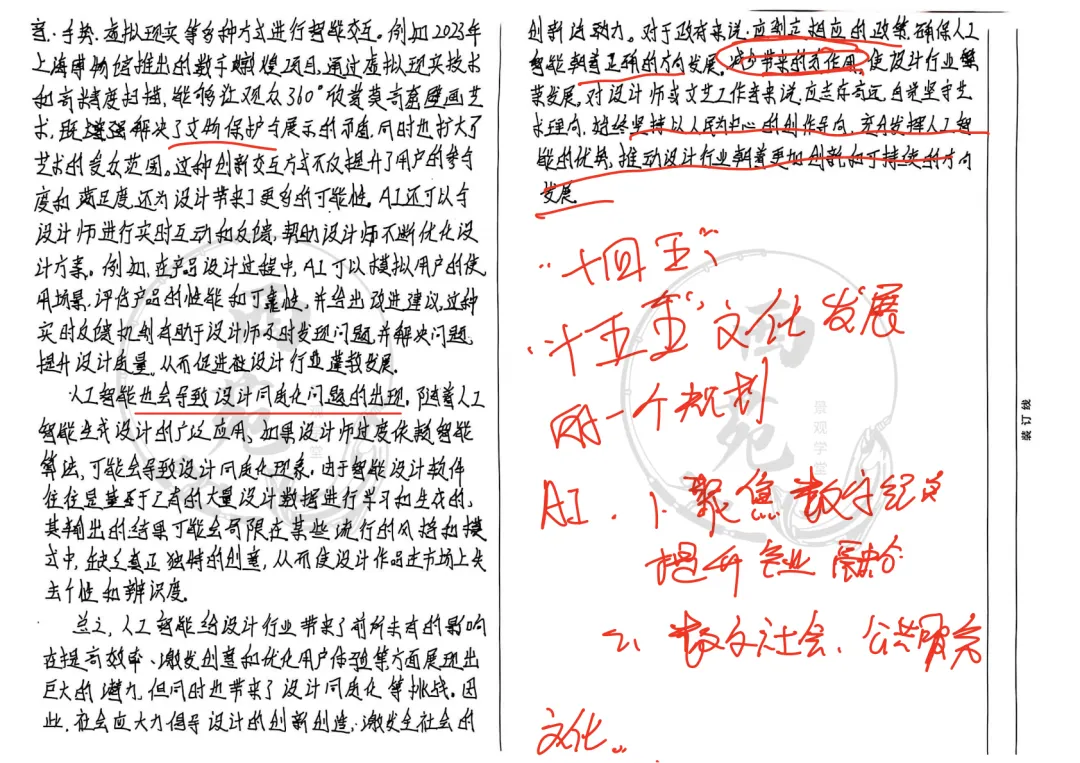 音、手势、虚拟现实等多种方式进行智能交互。例如2023年
上海博物馆推出的数字敦煌项目,通过虚拟现实技术
和高精度扫描,能够让观众360°欣赏莫高窟壁画艺
术,既 解决了文物保护与展示的矛盾,同时也扩大了
艺术的受众范围。这种创新交互方式不仅提升了用户的参与
度和满足度,还为设计带来了更多的可能性。AI还可以与
设计师进行实时互动和反馈,帮助设计师不断优化设
计方案。例如,在产品设计过程中,AI可以模拟用户的使
用场景,评估产品的性能和可靠性。并给出改进建议,这种
实时反馈机制有助于设计师及时发现问题,并解决问题,
提升设计质量,从而促进 设计行业蓬勃发展。
人工智能也会导致设计同质化问题的出现。随着人工
智能生成设计的广泛应用,如果设计师过度依赖智能
算法,可能会导致设计同质化现象。由于智能设计软件
往往是基于已有的大量设计数据进行学习和生成的,
其输出的结果可能会局限在某些流行的风格和模
式中,缺乏真正独特的创意,从而使设计作品在市场上失
去个性和辨识度。
总之,人工智能给设计行业带来了前所未有的影响
在提高效率、激发创意和优化用户体验等方面展现出
巨大的潜力,但同时也带来了设计同质化等挑战。因
此,社会应大力倡导设计的创新创造,激发全社会的
创新活动力。对于政府来说,应制定相应的政策,确保人工
智能朝着正确的方向发展。减少带来的负作用,使设计行业繁
荣发展。对设计师或文艺工作者来说,应志存高远,自觉坚守艺
术理向,始终坚持以人民为中心的创作导向,充分发挥人工智
能的优势,推动设计行业朝着更加创新和可持续的方向
发展
“十四五”
“十五五”文化发展
用一个规划
AI.1.聚焦数字经济
提升产业融合
2、数字社会、公共服务
文化..
西苑
景观学堂
西苑
景观学堂
装订线